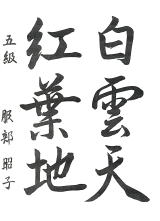 白雲天
紅葉地
五級 服部昭子